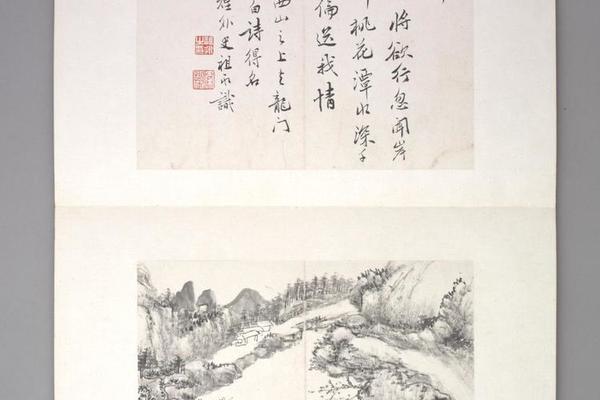 將欲行忽聞岸
桃花潭水深千
倫送我情
西山之上與龍門
詩得名
外史祖永識